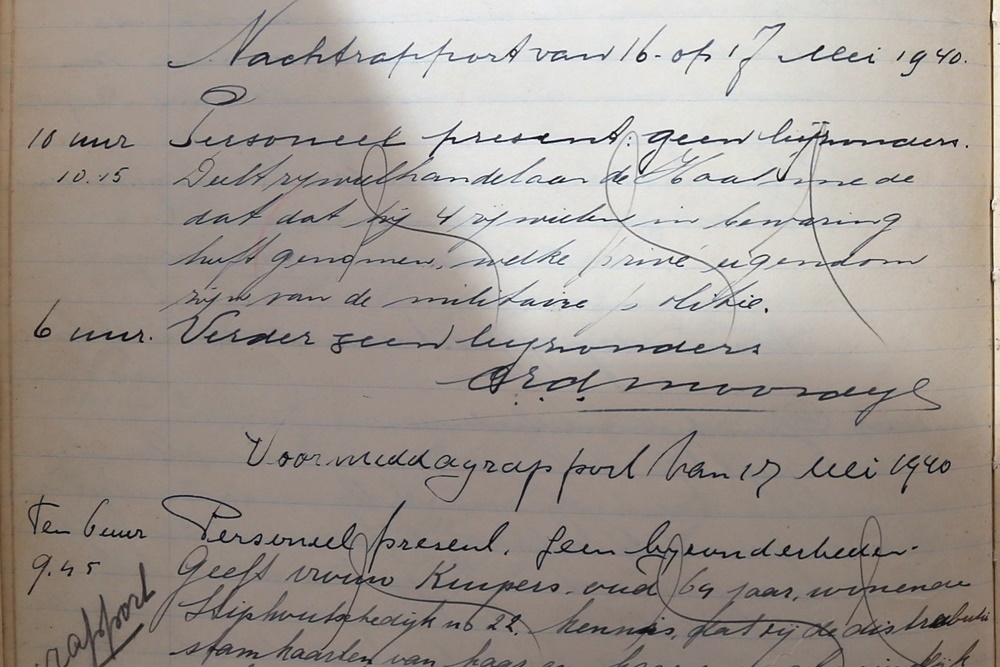 Nachtrapport van 16 op 17 Mei 1940.
10 uur Personeel present: geen bijzonders.
10.15 Deelt rijwielhandelaar de Haat mede
dat dat hij 4 rijwielen in bewaring
heeft genomen, welke privé eigendom
zijn van de militaire politie.
6 uur. Verder geen bijzonders
Voormiddagrapport van 17 Mei 1940
Ten 6 uur Personeel present. geen bijzonderheden.
9.45 Geeft vrouw Kuipers, oud 69 jaar, wonende
no 22, kennis, dat zij de distributie
stamkaarten van haar en
rapport